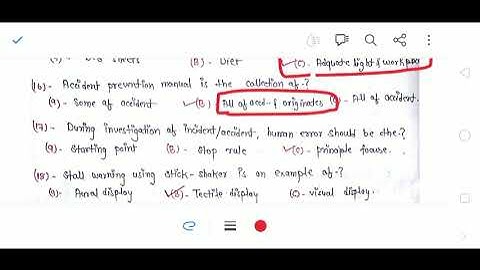 (B) - Diet (C) - Adquate light & work
(16) - Accident prevention manual is the collection of-?
(a) - Some of accident (B) All of acc-- & originates - All of accident.
(17) - During investigation of incident/accident, human error should be the-?
(a) - Starting point (B) - Stop rule (C) - principle
(18) - Stall warning using stick-shaker is an example of-?
(a) - Aural display (B) - Tectile display (C) - visual display.